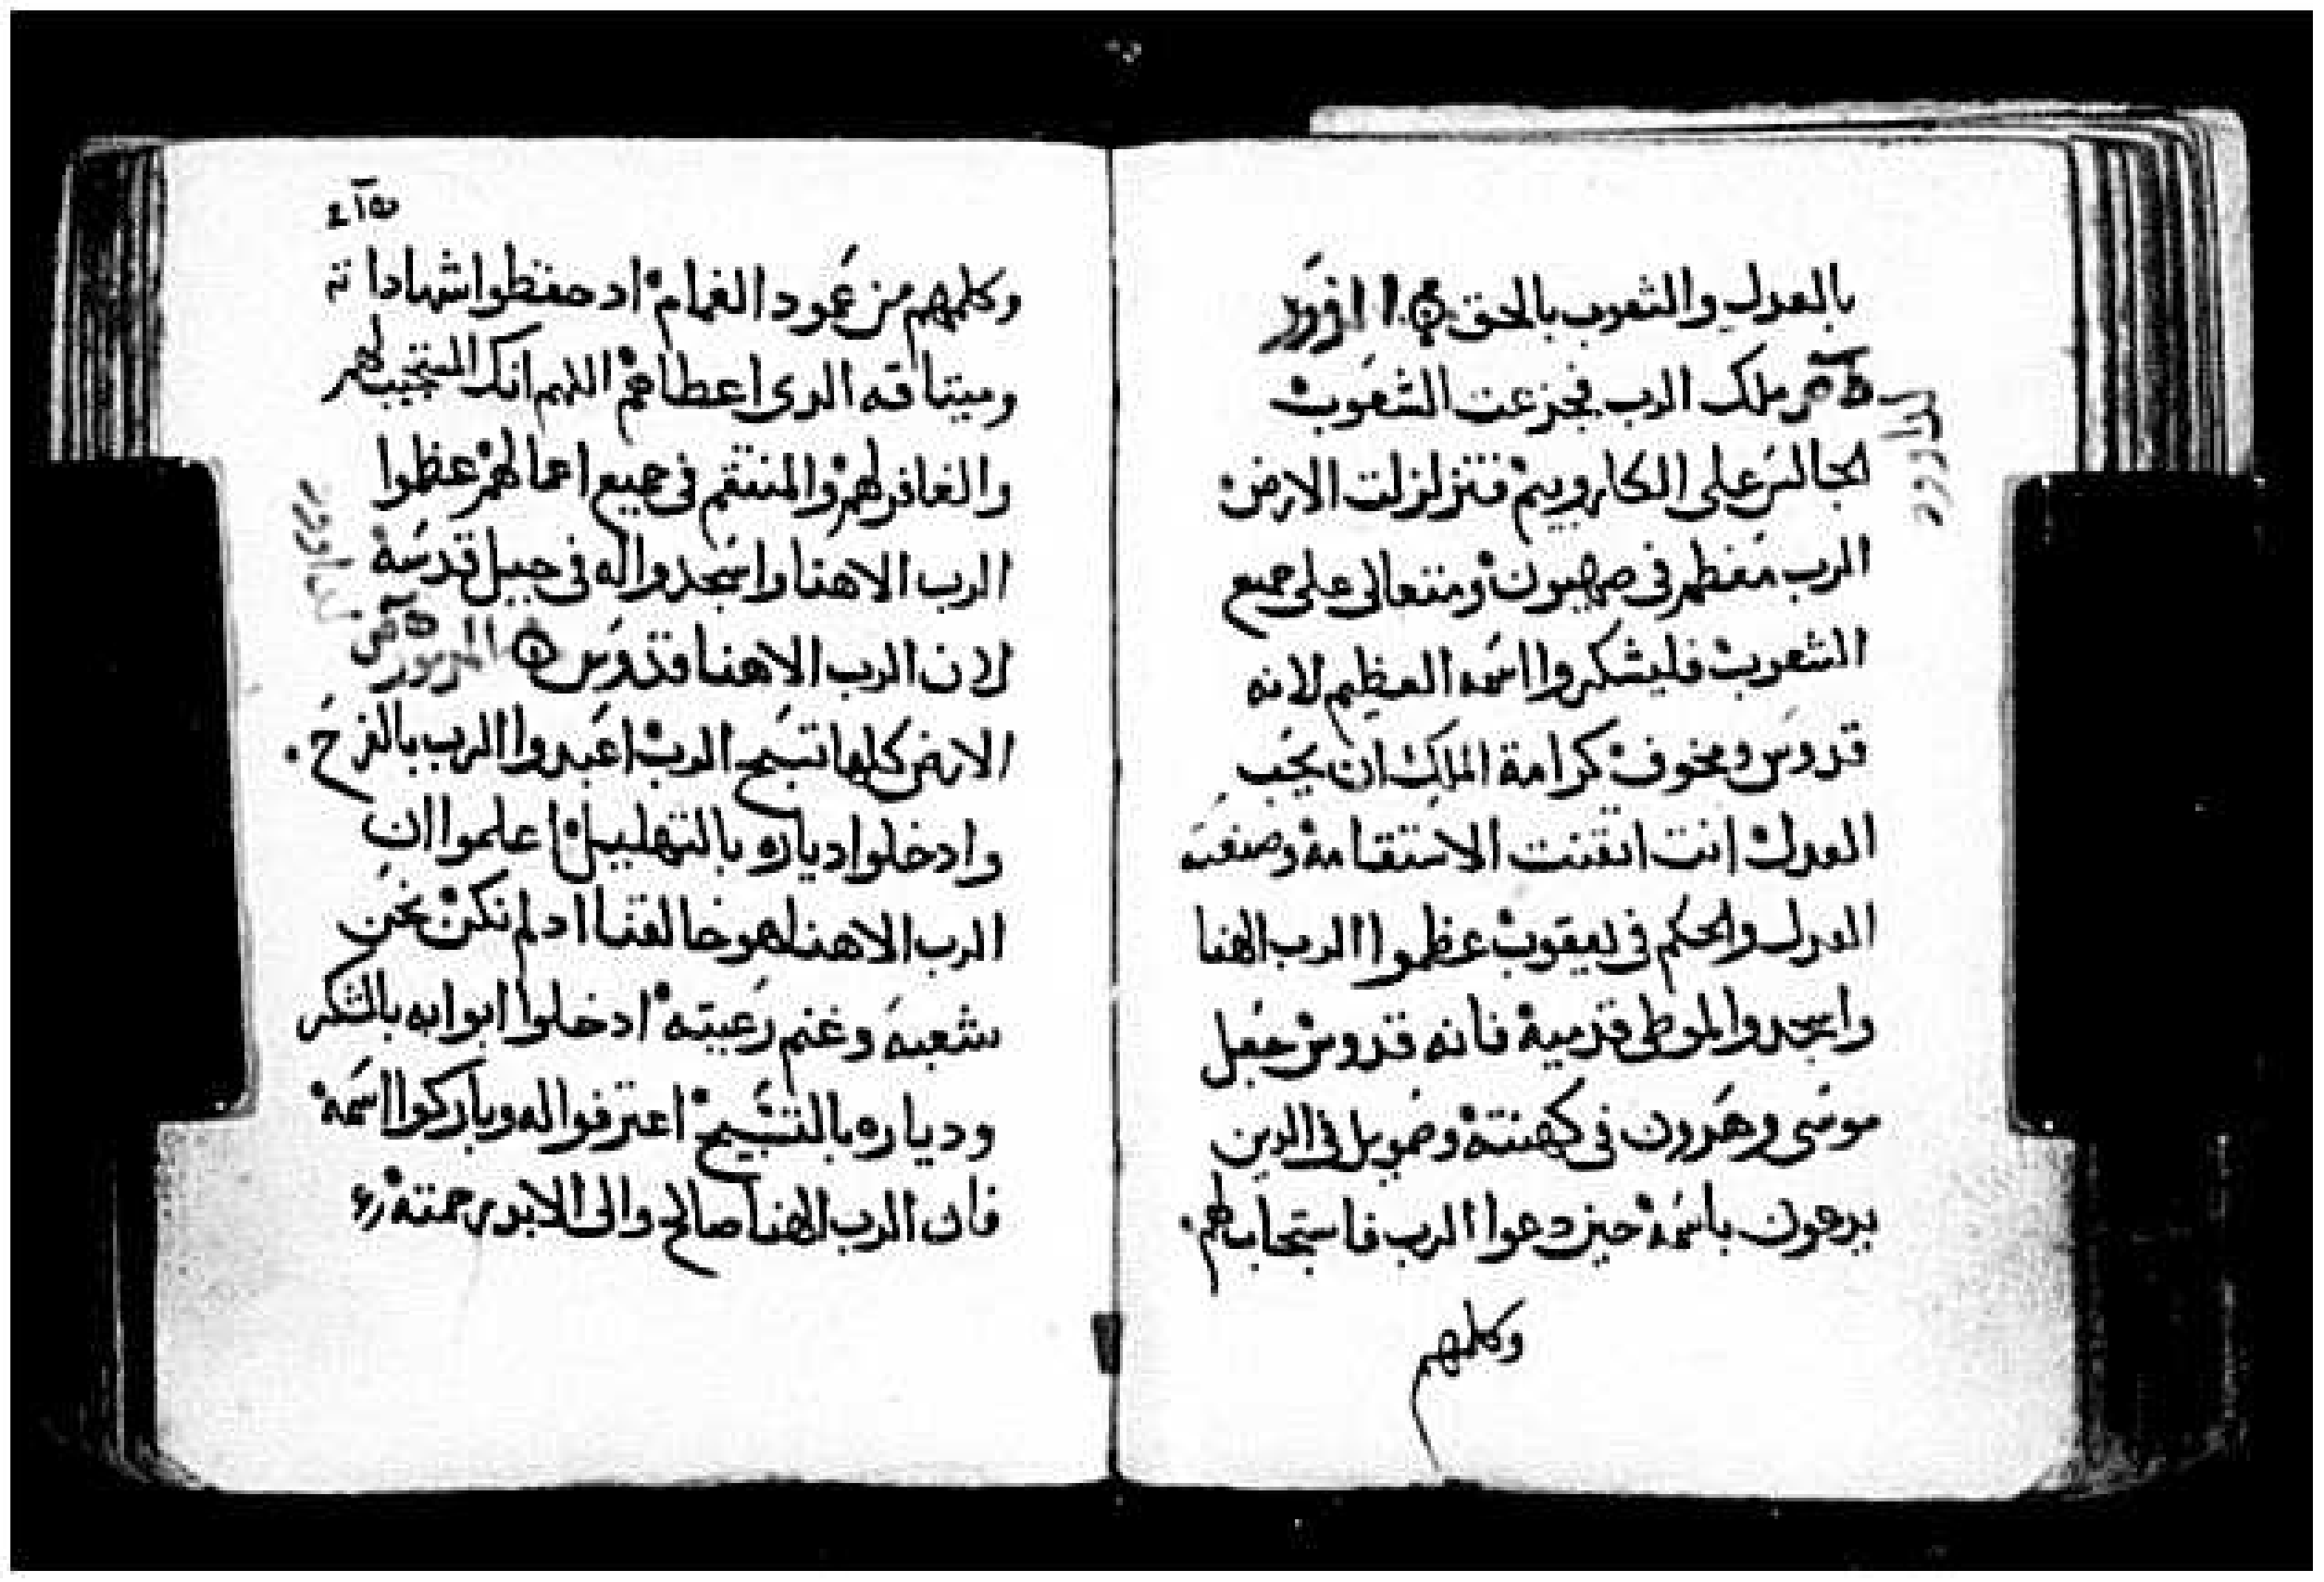 بالعدل والشعوب بالحق
ملك الرب فجزعت الشعوب
الجالس على الكاروبيم فتزلزلت الارض
الرب معظم في صهيون ومتعالى على جميع
الشعوب فليشكروا اسمه العظيم لانه
قدوس ومخوف كرامة الملك ان يحب
العدل انت اتقنت الاستقامة وصنعت
العدل والحكم في يعقوب عظموا الرب الهنا
واسجدوا لموطى قدميه فانه قدوس جعل
موسى وهرون في كهنته وصمويل في الدين
يدعون باسمه حين دعوا الرب فاستجاب لهم
وكلمهم
وكلمهم من عمود الغمام اد حفظوا شهاداته
وميتاقه الدى اعطاهم اللهم انك المستجيب لهم
والغافر لهم والمنتقم في جميع اعمالهم عظموا
الرب الاهنا واسجدوا له في جبل قدسه
لان الرب الاهنا قدوس المزمور
الارض كلها تسبح الرب اعبدوا الرب بالفرح
وادخلوا دياره بالتهليل اعلموا ان
الرب الاهنا هو خالقنا اد لم نكن نحن
شعبه وغنم رعيته ادخلوا ابوابه بالشكر
ودياره بالتسبيح اعترفوا له وباركوا اسمه
فان الرب الهنا صالح والى الابد رحمته